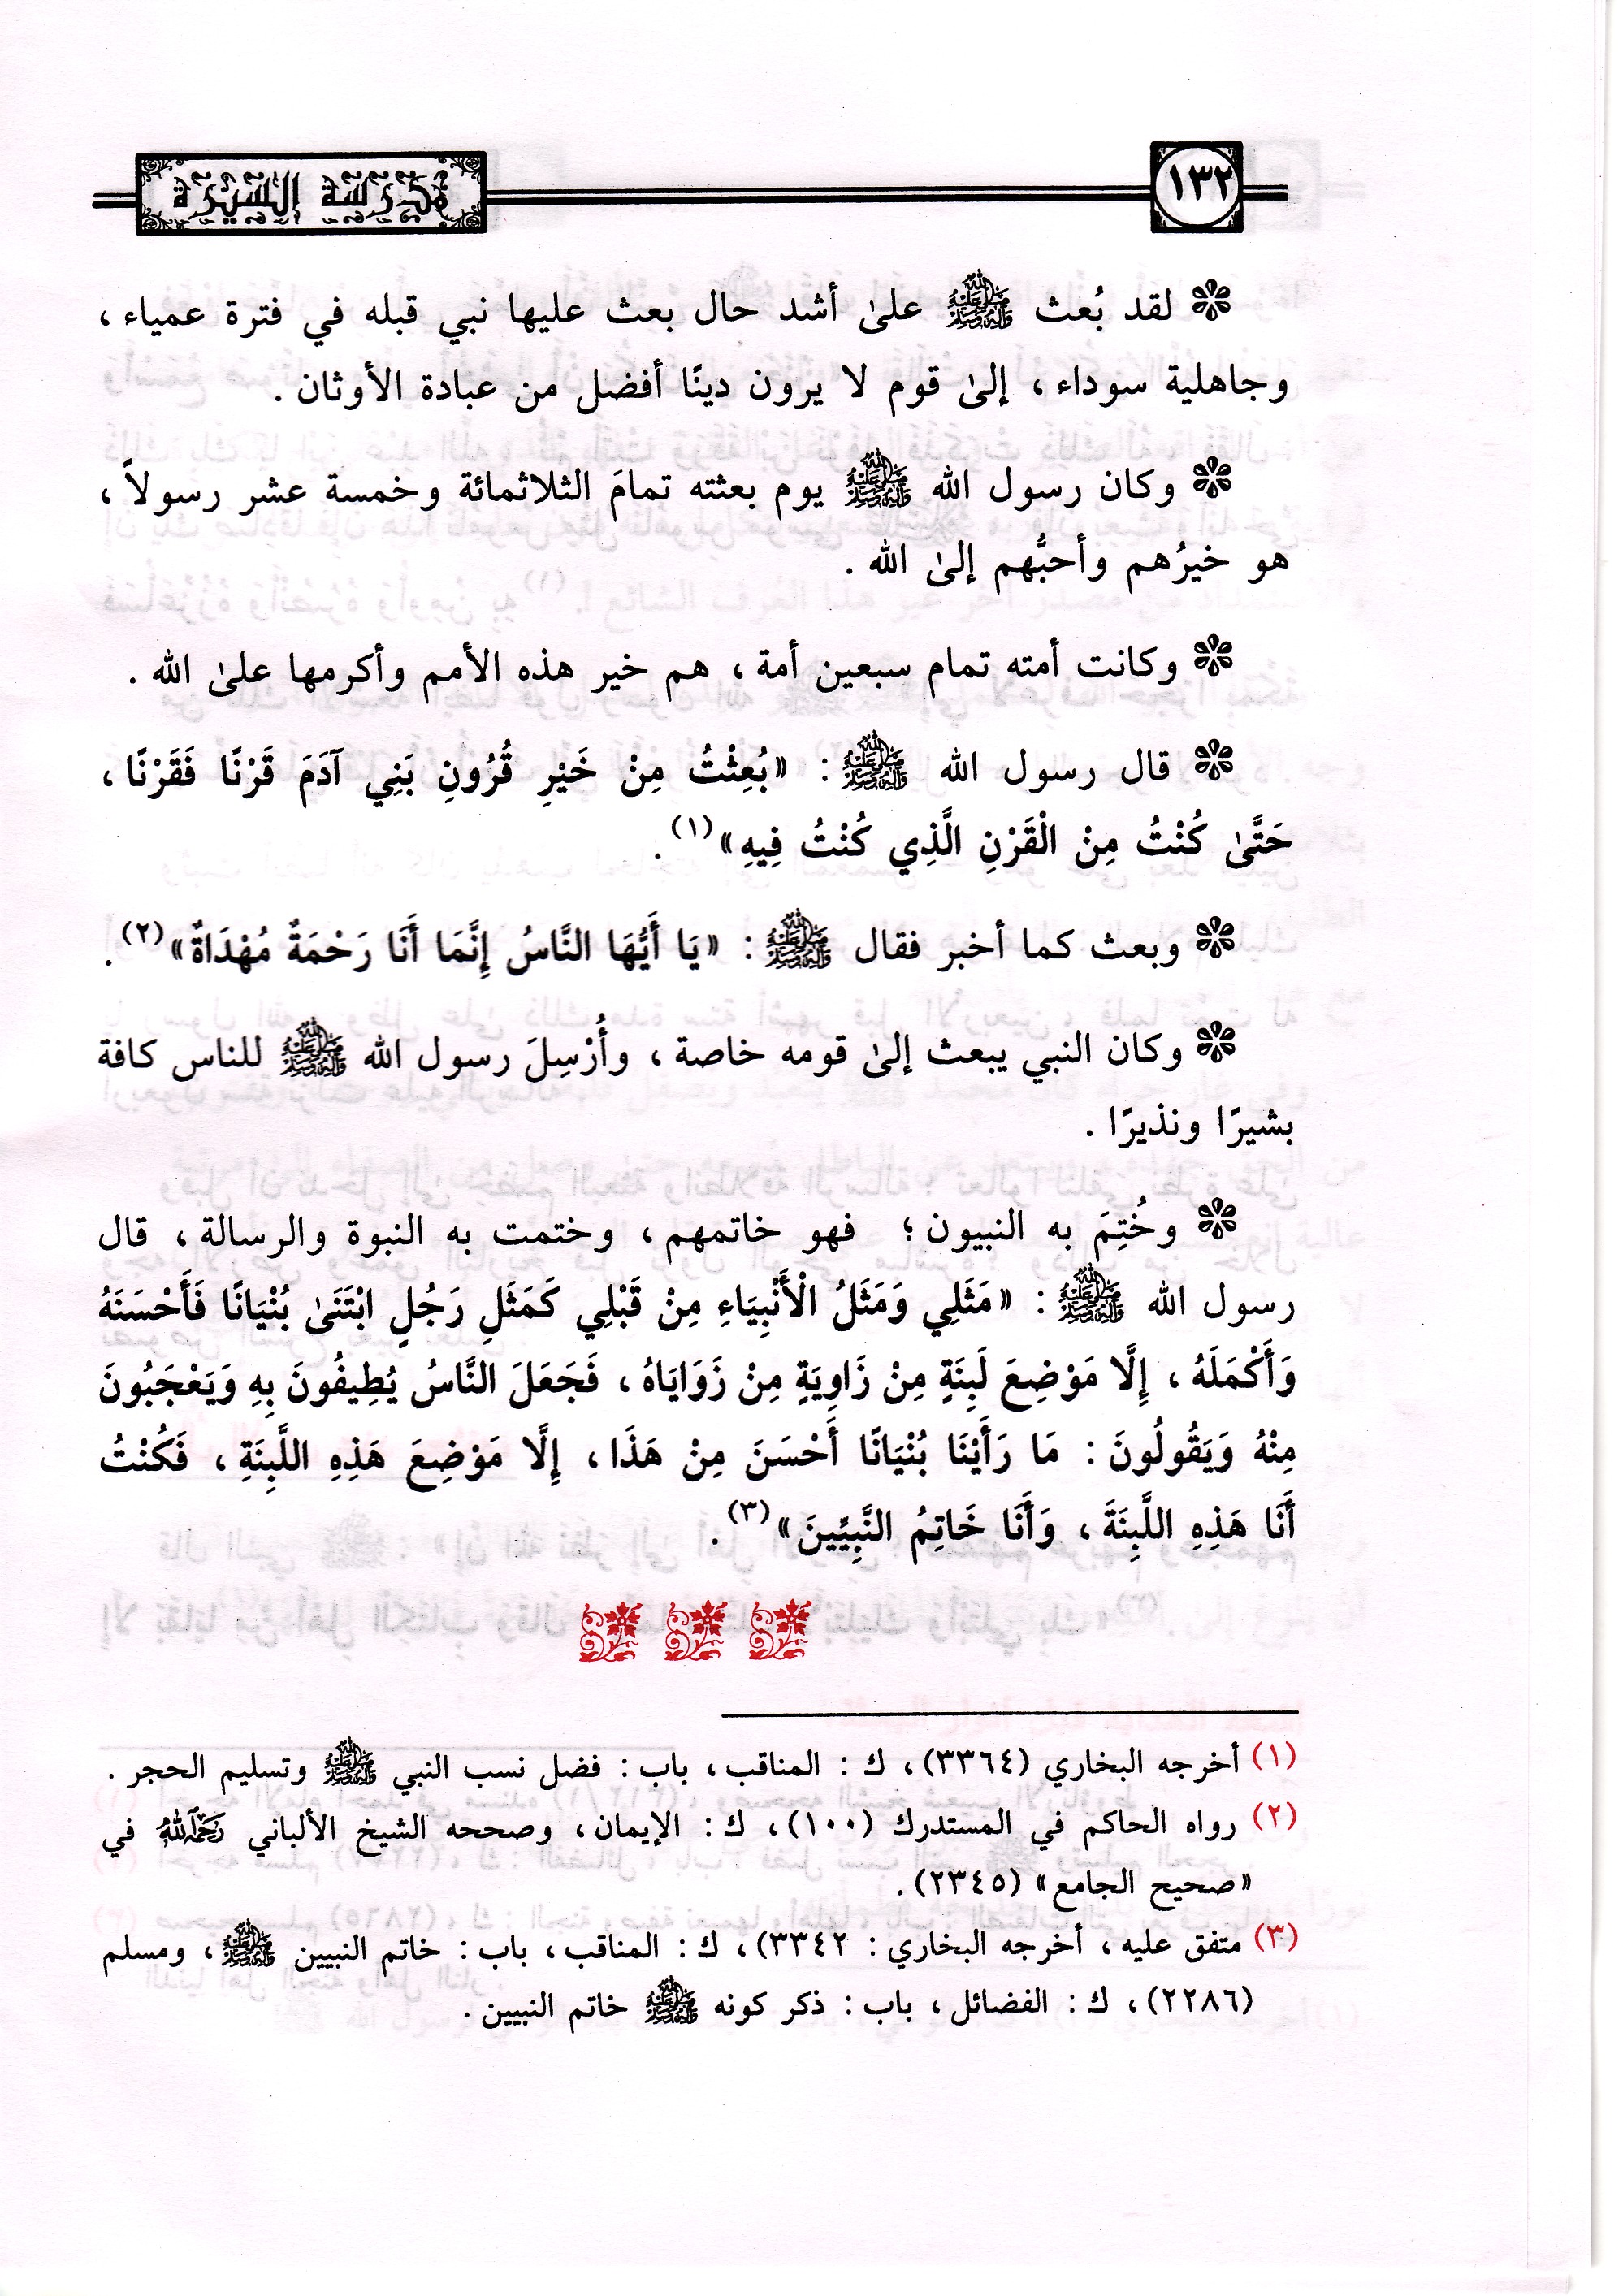 ١٣٢
مدرسة السيرة
لقد بُعث ﷺ علىٰ أشد حال بعث عليها نبي قبله في فترة عمياء ،
وجاهلية سوداء ، إلىٰ قوم لا يرون دينًا أفضل من عبادة الأوثان .
وكان رسول الله ﷺ يوم بعثته تمامَ الثلاثمائة وخمسة عشر رسولاً ،
هو خيرُهم وأحبُّهم إلىٰ الله .
وكانت أمته تمام سبعين أمة ، هم خير هذه الأمم وأكرمها علىٰ الله .
قال رسول الله ﷺ : «بُعِثْتُ مِنْ خَيْرِ قُرُونِ بَنِي آدَمَ قَرْنًا فَقَرْنًا ،
حَتَّىٰ كُنْتُ مِنْ الْقَرْنِ الَّذِي كُنْتُ فِيهِ»(١) .
وبعث كما أخبر فقال ﷺ : «يَا أَيُّهَا النَّاسُ إِنَّمَا أَنَا رَحْمَةٌ مُهْدَاةٌ»(٢) .
وكان النبي يبعث إلىٰ قومه خاصة ، وأُرْسِلَ رسول الله ﷺ للناس كافة
بشيرًا ونذيرًا .
وخُتِمَ به النبيون ؛ فهو خاتمهم ، وختمت به النبوة والرسالة ، قال
رسول الله ﷺ : «مَثَلِي وَمَثَلُ الْأَنْبِيَاءِ مِنْ قَبْلِي كَمَثَلِ رَجُلٍ ابْتَنَىٰ بُنْيَانًا فَأَحْسَنَهُ
وَأَكْمَلَهُ ، إِلَّا مَوْضِعَ لَبِنَةٍ مِنْ زَاوِيَةٍ مِنْ زَوَايَاهُ ، فَجَعَلَ النَّاسُ يُطِيفُونَ بِهِ وَيَعْجَبُونَ
مِنْهُ وَيَقُولُونَ : مَا رَأَيْنَا بُنْيَانًا أَحْسَنَ مِنْ هَذَا ، إِلَّا مَوْضِعَ هَذِهِ اللَّبِنَةِ ، فَكُنْتُ
أَنَا هَذِهِ اللَّبِنَةَ ، وَأَنَا خَاتِمُ النَّبِيِّينَ»(٣) .
(١) أخرجه البخاري (٣٣٦٤) ، ك : المناقب ، باب : فضل نسب النبي ﷺ وتسليم الحجر .
(٢) رواه الحاكم في المستدرك (١٠٠) ، ك : الإيمان ، وصححه الشيخ الألباني رَحِمَهُ اللهُ في
«صحيح الجامع» (٢٣٤٥) .
(٣) متفق عليه ، أخرجه البخاري : ٣٣٤٢) ، ك : المناقب ، باب : خاتم النبيين ﷺ ، ومسلم
(٢٢٨٦) ، ك : الفضائل ، باب : ذكر كونه ﷺ خاتم النبيين .